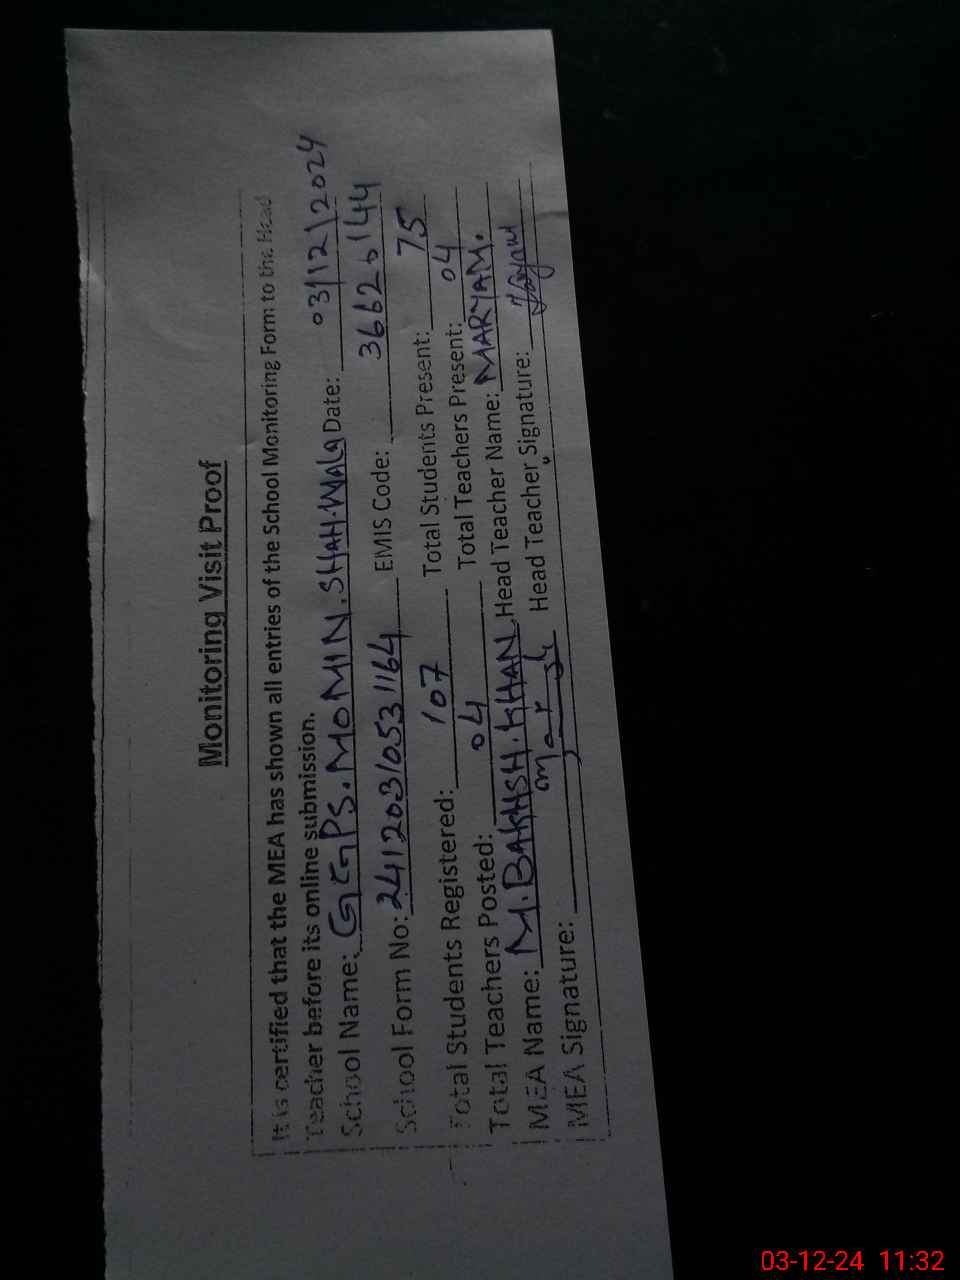 Monitoring Visit Proof
It is certified that the MEA has shown all entries of the School Monitoring Form to the Head
Teacher before its online submission.
School Name: GGPS.MOMIN.SHAH.WALA Date: 03/12/2024
School Form No: 2412031053 1164 EMIS Code: 36626144
Total Students Registered: 107 Total Students Present: 75
Total Teachers Posted: 04 Total Teachers Present: 04
MEA Name: M.BAKHSH.KHAN Head Teacher Name: MARYAM.
MEA Signature: Head Teacher Signature:
03-12-24 11:32